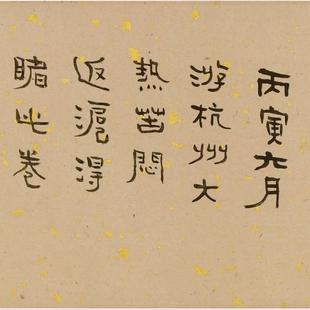 丙寅六月
游杭州大
热苦悶
返滬得
睹此卷